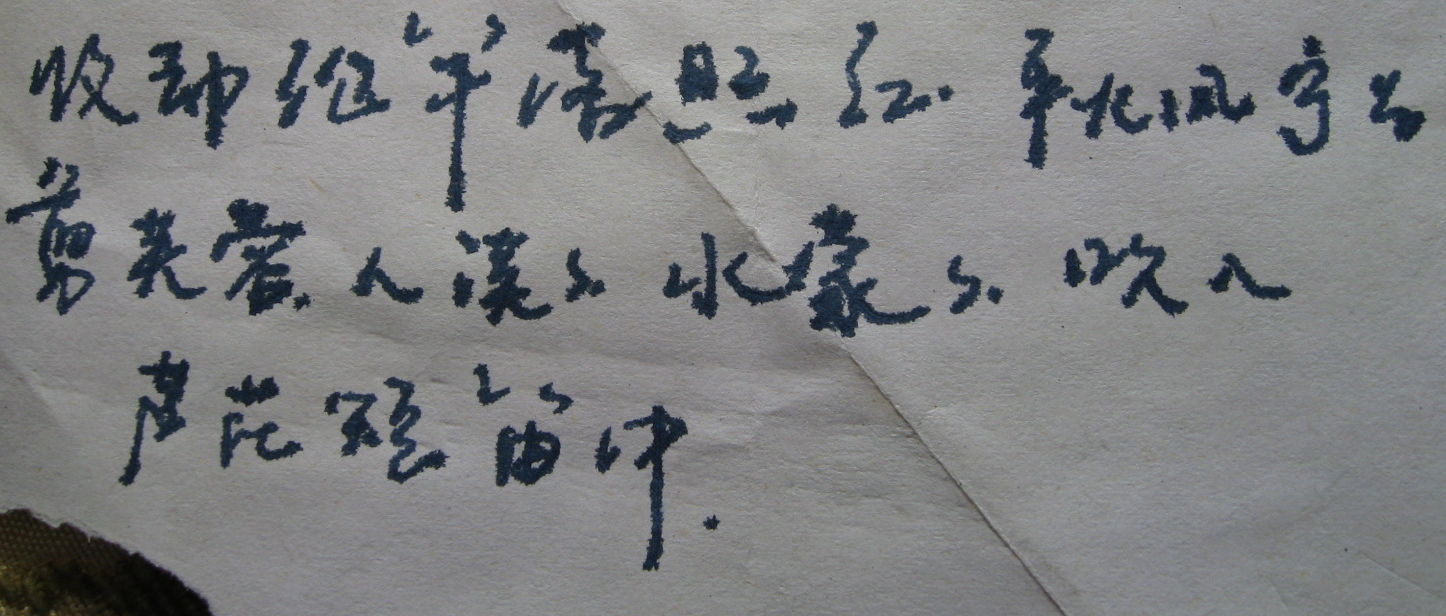 收却纶竿落照红.秋风宁为
剪芙蓉.人淡々.水蒙々.吹入
芦花短笛中.